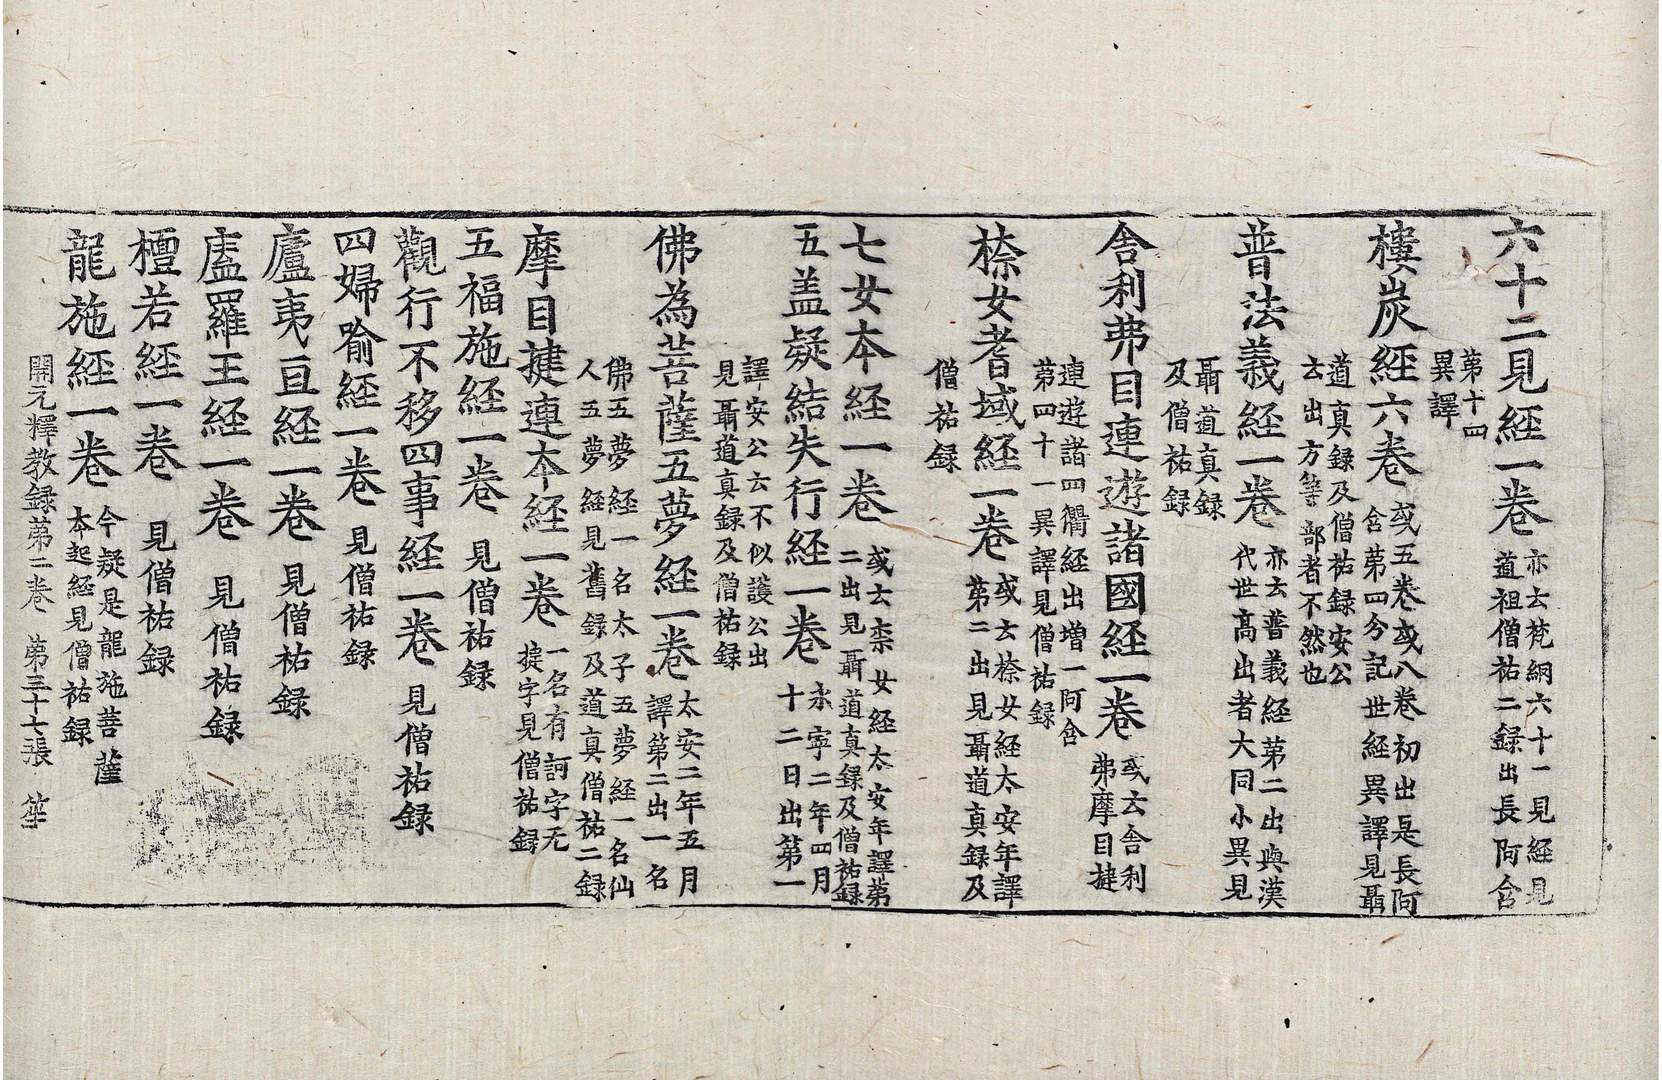 六十二見経一巻 亦云梵網六十一見経見
道祖僧祐二録出長阿含
第十四
異譯
樓炭経六巻 或五巻或八巻初出是長阿
含第四今記世経異譯見聶
道真録及僧祐録安公
云出方等部者不然也
普法義経一巻 亦云普義経第二出與漢
代世髙出者大同小異見
聶道真録
及僧祐録
舎利弗目連遊諸國経一巻 或云舎利
弗摩目揵
連遊諸四衢経出増一阿含
第四十一異譯見僧祐録
㮈女耆域経一巻 或云㮈女経太安年譯
第二出見聶道真録及
僧祐録
七女本経一巻 或云柰女経太安年譯第
二出見聶道真録及僧祐録
五盖疑結失行経一巻 永寕二年四月
十二日出第一
譯安公云不似護公出
見聶道真録及僧祐録
佛為菩薩五夢経一巻 太安二年五月
譯第二出一名
佛五夢経一名太子五夢経一名仙
人五夢経見舊録及道真僧祐二録
摩目揵連夲経一巻 一名有訶字无
揵字見僧祐録
五福施経一巻 見僧祐録
觀行不移四事経一巻 見僧祐録
四婦喻経一巻 見僧祐録
廬夷亘経一巻 見僧祐録
廅羅王経一巻 見僧祐録
檀若経一巻 見僧祐録
龍施経一巻 今疑是龍施菩薩
本起経見僧祐録
開元釋教録第二巻 第三十七張 笙